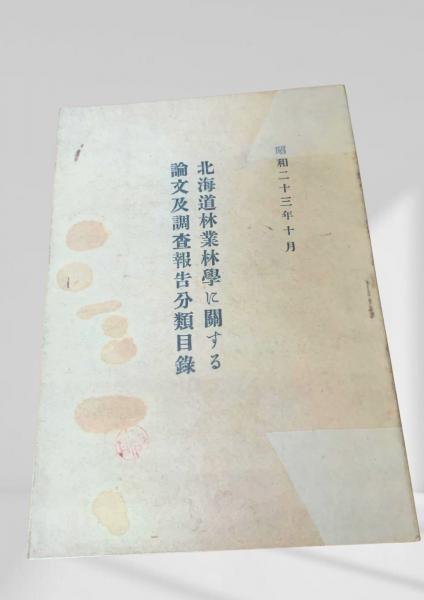 昭和二十三年十月
北海道林業林學に關する
論文及調査報告分類目錄